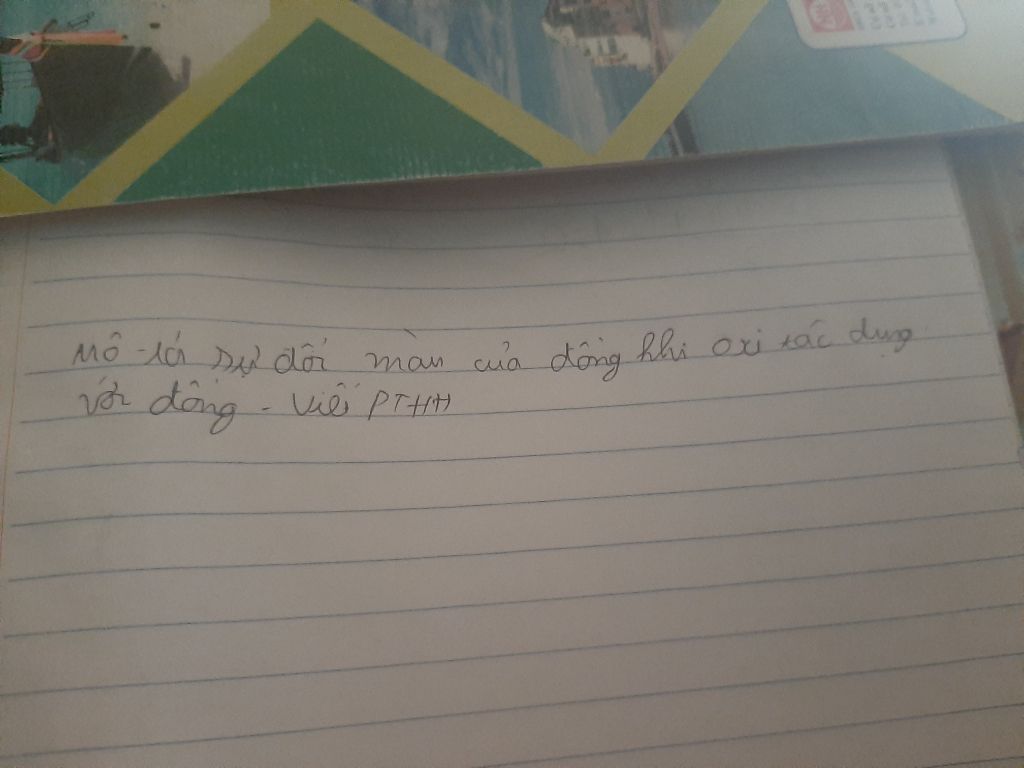 Mô tả sự đổi màu của đồng khi oxi tác dụng
với đồng - Viết PTHH